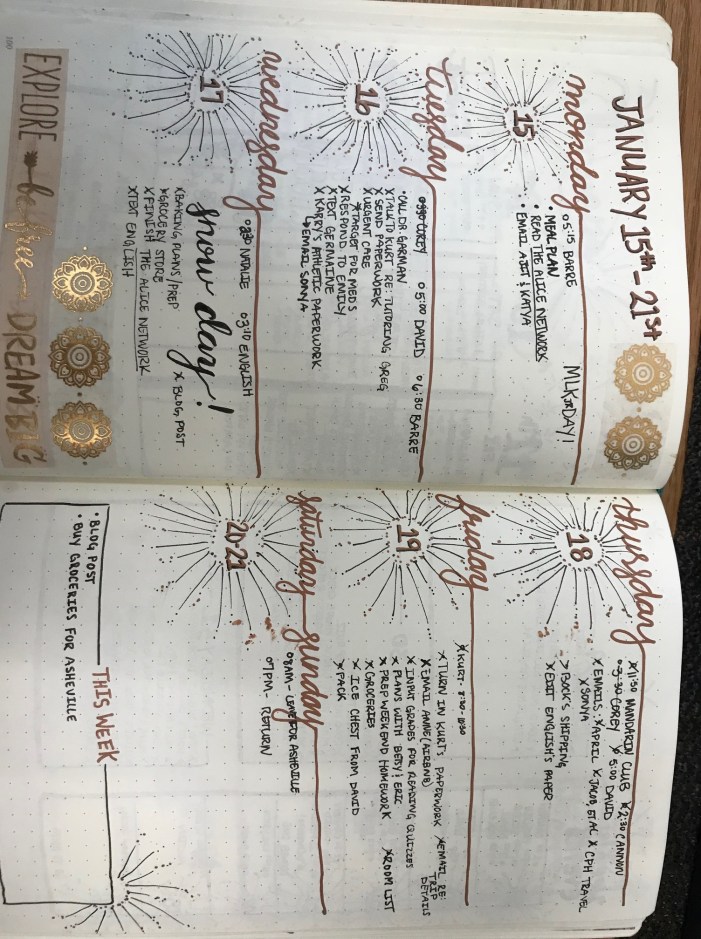 JANUARY 15th - 21st
monday
15
MLK DAY!
o 5:15 BARRE
MEAL PLAN
• READ THE ALICE NETWORK
• EMAIL AJIT & KATYA
tuesday
16
COREY o 5:00 DAVID o 6:30 BARRE
• CALL DR. GARMAN
X TALK TO KURT RE: TUTORING GREG
X SEND PAPERWORK
X URGENT CARE
X TARGET FOR MEDS
X RESPOND TO EMILY
X TEXT GERMAINE
X KARRY'S ATHLETIC PAPERWORK
↳ EMAIL SONYA
wednesday
17
NATALIE o 3:10 ENGLISH
snow day!
X BAKING PLANS/PREP X BLOG POST
X GROCERY STORE
X FINISH THE ALICE NETWORK
X TEXT ENGLISH
EXPLORE be free DREAM BIG
100
thursday
18
X 11:30 MANDARIN CLUB X 2:30 CANNON
3:30 COREY X 5:00 DAVID
X EMAILS: X APRIL X JACOB, ET AL X CPH TRAVEL
X SONYA
> BUCK'S SHIPPING
X EDIT ENGLISH'S PAPER
friday
19
X KURT - 8:30-10:30
X TURN IN KURT'S PAPERWORK X EMAIL RE: TRIP DETAILS
X EMAIL ANNE (AIRBNB)
X INPUT GRADES FOR READING QUIZZES
X PLANS WITH BETSY & ERIC
X PREP WEEKEND HOMEWORK X ROOM LIST
X GROCERIES
X ICE CHEST FROM DAVID
X PACK
saturday sunday
20-21
o 8AM - LEAVE FOR ASHEVILLE
o 7PM - RETURN
THIS WEEK
• BLOG POST
• BUY GROCERIES FOR ASHEVILLE